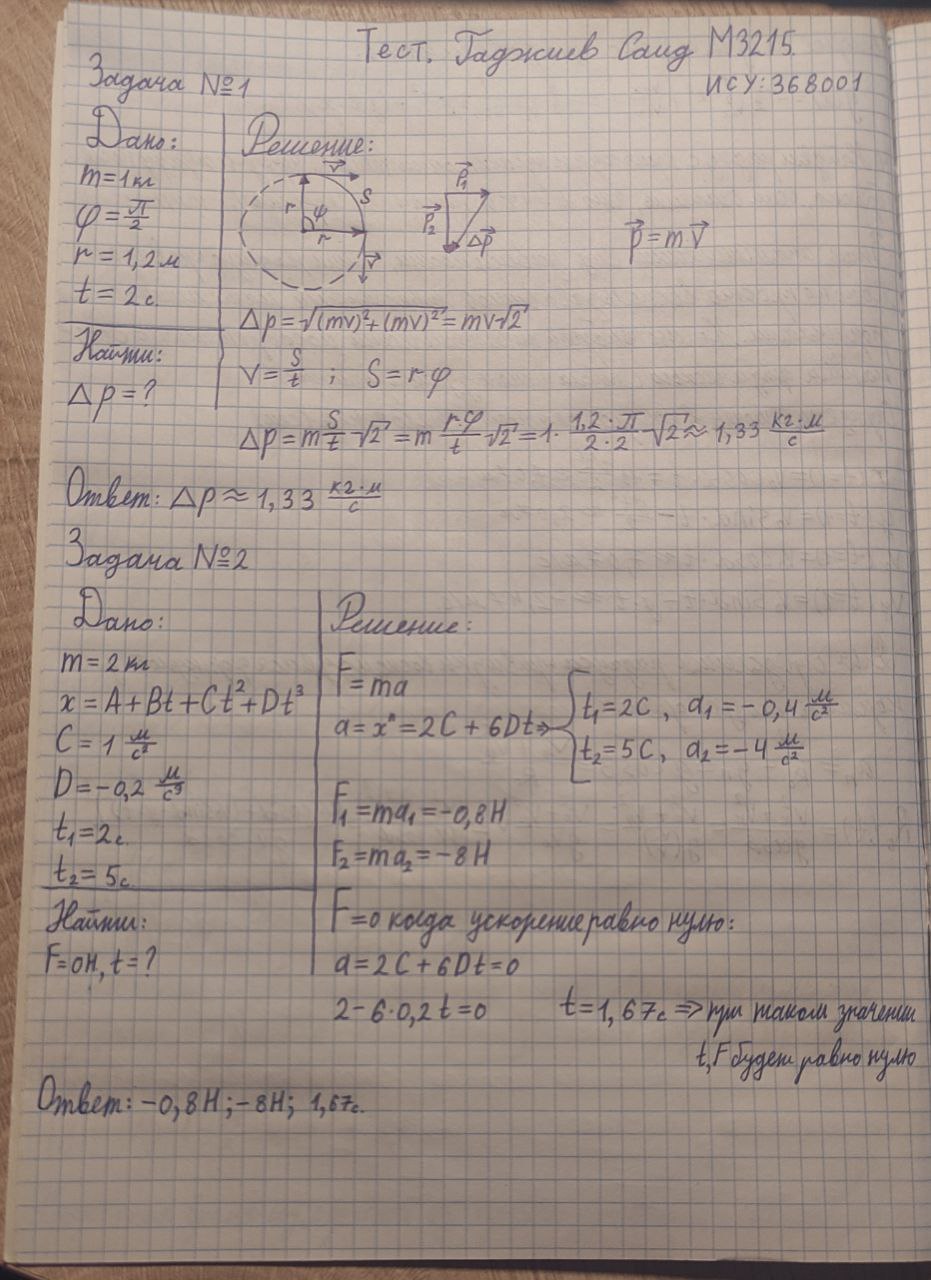 Тест. Гаджиев Саид М3215.
ИСУ: 368001
Задача №1
Дано:
m=1кг
φ=π/2
r=1,2м
t=2с.
Найти:
Δp=?
Решение:
v⃗
S
r
φ
r
v⃗
p⃗₁
p⃗₂
Δp⃗
p⃗=mv⃗
Δp=√((mv)²+(mv)²)=mv√2
V=S/t ; S=rφ
Δp=m S/t √2=m r·φ/t √2=1· 1,2·π/2·2 √2≈1,33 кг·м/с
Ответ: Δp≈1,33 кг·м/с
Задача №2
Дано:
m=2кг
x=A+Bt+Ct²+Dt³
C=1 м/с²
D=-0,2 м/с³
t₁=2с.
t₂=5с.
Найти:
F=0Н, t=?
Решение:
F=ma
a=x"=2C+6Dt⇒
t₁=2С, a₁=-0,4 м/с²
t₂=5С, a₂=-4 м/с²
F₁=ma₁=-0,8Н
F₂=ma₂=-8Н
F=0 когда ускорение равно нулю:
a=2C+6Dt=0
2-6·0,2t=0 t=1,67с ⇒ при таком значении
t, F будет равно нулю
Ответ: -0,8Н; -8Н; 1,67с.